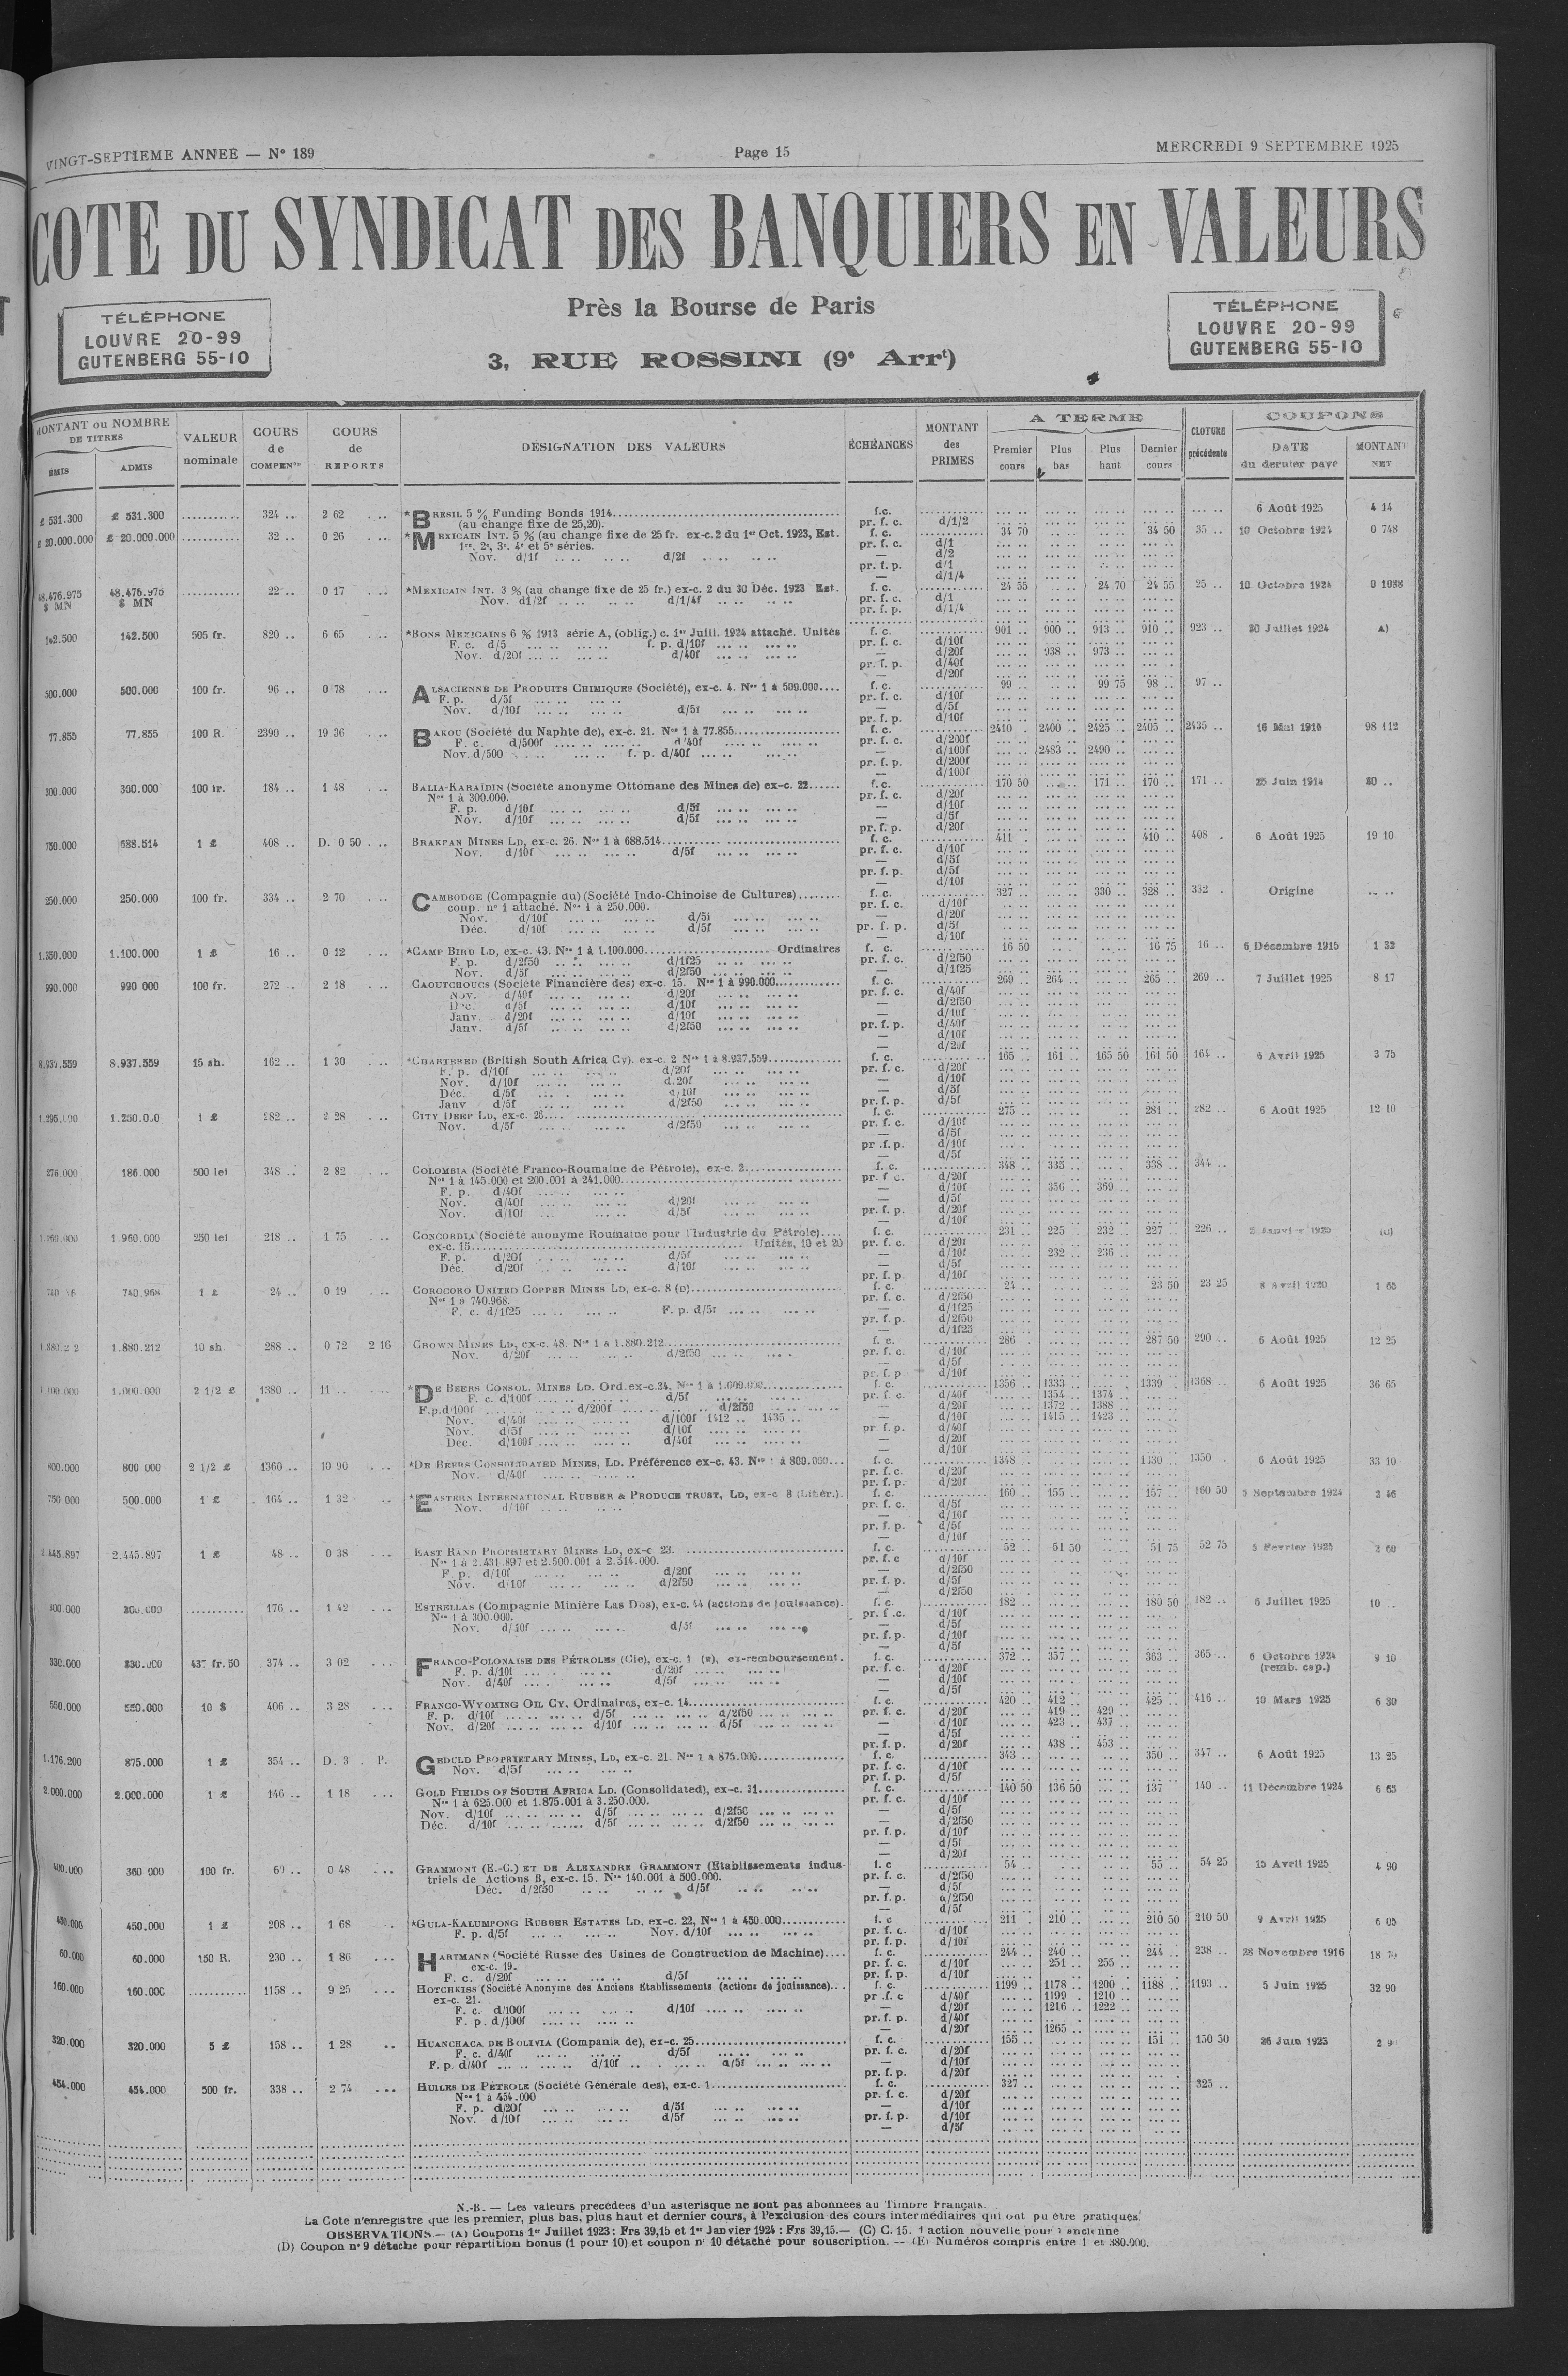 VINGT-SEPTIEME ANNEE — N° 189
Page 15
MERCREDI 9 SEPTEMBRE 1925
COTE DU SYNDICAT DES BANQUIERS EN VALEURS
TÉLÉPHONE
LOUVRE 20-99
GUTENBERG 55-10
Près la Bourse de Paris
3, RUE ROSSINI (9e Arrt)
TÉLÉPHONE
LOUVRE 20-99
GUTENBERG 55-10
MONTANT ou NOMBRE DE TITRES
ÉMIS ADMIS
VALEUR nominale
COURS de COMPENon
COURS de REPORTS
DÉSIGNATION DES VALEURS
ÉCHÉANCES
MONTANT des PRIMES
A TERME
Premier cours Plus bas Plus haut Dernier cours
CLOTURE précédente
COUPONS
DATE du dernier payé MONTANT NET
£ 531.300 £ 531.300 ........... 324 .. 2 62 *BRESIL 5 % Funding Bonds 1914 f.c. 6 Août 1925 4 14
(au change fixe de 25,20). pr. f. c. d/1/2
£ 20.000.000 £ 20.000.000 ........... 32 .. 0 26 *MEXICAIN INT. 5 % (au change fixe de 25 fr. ex-c. 2 du 1er Oct. 1923, Est. f. c. 34 70 34 50 35 .. 10 Octobre 1924 0 748
1re, 2e, 3e, 4e et 5e séries. pr. f. c. d/1
Nov. d/1f d/2f — d/2
pr. f. p. d/1
— d/1/4
48.476.975 $ MN 48.476.975 $ MN ........... 22 .. 0 17 *MEXICAIN INT. 3 % (au change fixe de 25 fr.) ex-c. 2 du 30 Déc. 1923 Est. f. c. 24 55 24 70 24 55 25 .. 10 Octobre 1924 0 1088
Nov. d1/2f d/1/4f pr. f. c. d/1
pr. f. p. d/1/4
142.500 142.500 505 fr. 820 .. 6 65 *BONS MEXICAINS 6 % 1913 série A, (oblig.) c. 1er Juill. 1924 attaché. Unités f. c. 901 .. 900 .. 913 .. 910 .. 923 .. 30 Juillet 1924 A)
F. c. d/5 f. p. d/10f pr. f. c. d/10f
Nov. d/20f d/40f — d/20f 938 .. 973 ..
pr. f. p. d/40f
— d/20f
500.000 500.000 100 fr. 96 .. 0 78 ALSACIENNE DE PRODUITS CHIMIQUES (Société), ex-c. 4. Nos 1 à 500.000.... f. c. 99 .. 99 75 98 .. 97 ..
F. p. d/5f pr. f. c. d/10f
Nov. d/10f d/5f — d/5f
pr. f. p. d/10f
77.855 77.855 100 R. 2390 .. 19 36 BAKOU (Société du Naphte de), ex-c. 21. Nos 1 à 77.855 f. c. 2410 .. 2400 .. 2425 .. 2405 .. 2435 .. 16 Mai 1916 98 112
F. c. d/500f d/40f pr. f. c. d/200f
Nov. d/500 f. p. d/40f — d/100f 2483 .. 2490 ..
pr. f. p. d/200f
— d/100f
300.000 300.000 100 fr. 184 .. 1 48 BALIA-KARAÏDIN (Société anonyme Ottomane des Mines de) ex-c. 22...... f. c. 170 50 171 .. 170 .. 171 .. 25 Juin 1914 20 ..
Nos 1 à 300.000. pr. f. c. d/20f
F. p. d/10f d/5f — d/10f
Nov. d/10f d/5f — d/5f
pr. f. p. d/20f
750.000 688.514 1 £ 408 .. D. 0 50 BRAKPAN MINES LD, ex-c. 26. Nos 1 à 688.514 f. c. 411 . 410 .. 408 . 6 Août 1925 19 10
Nov. d/10f d/5f pr. f. c. d/10f
— d/5f
pr. f. p. d/5f
— d/10f
250.000 250.000 100 fr. 334 .. 2 70 CAMBODGE (Compagnie du) (Société Indo-Chinoise de Cultures)........ f. c. 327 .. 330 .. 328 .. 332 . Origine
coup. n° 1 attaché. Nos 1 à 250.000. pr. f. c. d/10f
Nov. d/10f d/5f — d/20f
Déc. d/10f d/5f pr. f. p. d/5f
— d/10f
1.350.000 1.100.000 1 £ 16 .. 0 12 *CAMP BIRD LD, ex-c. 43. Nos 1 à 1.100.000 Ordinaires f. c. 16 50 16 75 16 .. 6 Décembre 1915 1 32
F. p. d/2f50 d/1f25 pr. f. c. d/2f50
Nov. d/5f d/2f50 — d/1f25
990.000 990 000 100 fr. 272 .. 2 18 CAOUTCHOUCS (Société Financière des) ex-c. 15. Nos 1 à 990.000 f. c. 269 .. 264 .. 265 .. 269 .. 7 Juillet 1925 8 17
Nov. d/40f d/20f pr. f. c. d/40f
Dec. d/5f d/10f — d/2f50
Janv. d/20f d/10f — d/10f
Janv. d/5f d/2f50 pr. f. p. d/40f
— d/10f
— d/20f
8.937.559 8.937.559 15 sh. 162 .. 1 30 *CHARTERED (British South Africa Cy). ex-c. 2 Nos 1 à 8.937.559 f. c. 165 .. 161 .. 165 50 161 50 164 .. 6 Avril 1925 3 75
F. p. d/10f d/20f pr. f. c. d/20f
Nov. d/10f d.20f — d/10f
Déc. d/5f d/10f — d/5f
Janv d/5f d/2f50 pr. f. p. d/5f
1.250.000 1 £ 282 .. 2 28 CITY DEEP LD, ex-c. 26 f. c. 275 .. 281 .. 282 .. 6 Août 1925 12 10
Nov. d/5f d/2f50 pr. f. c. d/10f
— d/5f
pr .f. p. d/10f
— d/5f
276.000 186.000 500 lei 348 .. 2 82 COLOMBIA (Société Franco-Roumaine de Pétrole), ex-c. 2 f. c. 348 .. 335 .. 338 .. 344 ..
Nos 1 à 145.000 et 200.001 à 241.000 pr. f c. d/20f
F. p. d/40f — d/10f 356 .. 369 ..
Nov. d/40f d/20f — d/5f
Nov. d/10f d/5f pr. f. p. d/20f
— d/10f
1.960.000 250 lei 218 .. 1 75 CONCORDIA (Société anonyme Roumaine pour l'Industrie du Pétrole).... f. c. 231 .. 225 .. 232 .. 227 .. 226 .. (C)
ex-c. 15 Unités, 10 et 20 pr. f. c. d/20f
F. p. d/20f d/5f — d/10f 232 .. 236 ..
Déc. d/20f d/10f — d/5f
pr. f. p. d/10f
740.968 1 £ 24 .. 0 19 COROCORO UNITED COPPER MINES LD, ex-c. 8 (D) f. c. 24 .. 23 50 23 25 8 Avril 1920 1 65
Nos 1 à 740.968. pr. f. c. d/2f50
F. c. d/1f25 F. p. d/5f — d/1f25
pr. f. p. d/2f50
— d/1f25
1.880.212 10 sh. 288 .. 0 72 2 16 CROWN MINES LD, ex-c. 48. Nos 1 à 1.880.212 f. c. 286 . 287 50 290 .. 6 Août 1925 12 25
Nov. d/20f d/2f50 pr. f. c. d/10f
— d/5f
pr. f. p d/10f
1.000.000 2 1/2 £ 1380 .. 11 .. *DE BEERS CONSOL. MINES LD. Ord. ex-c. 34. Nos 1 à 1.000.000 f. c. 1356 .. 1333 .. 1339 .. 1368 .. 6 Août 1925 36 65
F. c. d/100f d/5f pr. f. c. d/40f 1354 .. 1374 ..
F. p. d/100f d/200f d/2f50 — d/20f 1372 .. 1388 ..
Nov. d/40f d/100f 1412 .. 1435 .. — d/10f 1415 .. 1423 ..
Nov. d/5f d/10f pr. f. p. d/40f
Déc. d/100f d/40f — d/20f
— d/10f
800.000 800 000 2 1/2 £ 1360 .. 10 90 *DE BEERS CONSOLIDATED MINES, LD. Préférence ex-c. 43. Nos 1 à 800.000... f. c. 1348 .. 1330 .. 1350 . 6 Août 1925 33 10
Nov. d/40f pr. f. c. d/20f
pr. f. p. d/20f
750.000 500.000 1 £ 164 .. 1 32 *EASTERN INTERNATIONAL RUBBER & PRODUCE TRUST, LD, ex-c. 8 (Libér.). f. c. 160 .. 155 .. 157 .. 160 50 5 Septembre 1924 2 46
Nov. d/10f pr. f. c. d/5f
— d/10f
pr. f. p. d/5f
— d/10f
2.445.897 2.445.897 1 £ 48 .. 0 38 EAST RAND PROPRIETARY MINES LD, ex-c 23. f. c. 52 .. 51 50 51 75 52 75 5 Février 1925 2 60
Nos 1 à 2.431.897 et 2.500.001 à 2.514.000. pr. f. c d/10f
F. p. d/10f d/20f — d/2f50
Nov. d/10f d/2f50 pr. f. p. d/5f
— d/2f50
300.000 300.000 ........... 176 .. 1 42 ESTRELLAS (Compagnie Minière Las Dos), ex-c. 44 (actions de jouissance). f. c. 182 .. 180 50 182 .. 6 Juillet 1925 10 ..
Nos 1 à 300.000. pr. f .c. d/10f
Nov. d/10f d/5f — d/5f
pr. f. p. d/10f
— d/5f
330.000 330.000 437 fr. 50 374 .. 3 02 FRANCO-POLONAISE DES PÉTROLES (Cie), ex-c. 1 (E), ex-remboursement. f. c. 372 .. 357 .. 363 .. 365 .. 6 Octobre 1924 9 10
F. p. d/10f d/20f pr. f. c. d/20f (remb. cap.)
Nov. d/40f d/5f — d/10f
— d/5f
550.000 550.000 10 $ 406 .. 3 28 FRANCO-WYOMING OIL CY. Ordinaires, ex-c. 14 f. c. 420 .. 412 .. 425 .. 416 .. 10 Mars 1925 6 30
F. p. d/10f d/5f d/2f50 pr. f. c. d/20f 419 .. 429 ..
Nov. d/20f d/10f d/5f — d/10f 423 .. 437 ..
— d/5f
pr. f. p. d/20f 438 .. 453 ..
1.176.200 875.000 1 £ 354 .. D. 3 . P. GEDULD PROPRIETARY MINES, LD, ex-c. 21. Nos 1 à 875.000 f. c. 343 .. 350 .. 347 .. 6 Août 1925 13 25
Nov. d/5f pr. f. c. d/10f
pr. f. p. d/5f
2.000.000 2.000.000 1 £ 146 .. 1 18 GOLD FIELDS OF SOUTH AFRICA LD. (Consolidated), ex-c. 31 f. c. 140 50 136 50 137 140 .. 11 Décembre 1924 6 65
Nos 1 à 625.000 et 1.875.001 à 3.250.000. pr. f. c. d/10f
Nov. d/10f d/5f d/2f50 — d/5f
Déc. d/10f d/5f d/2f50 — d/2f50
pr. f. p. d/10f
— d/5f
— d/20f
400.000 360 000 100 fr. 60 .. 0 48 GRAMMONT (E.-C.) ET DE ALEXANDRE GRAMMONT (Etablissements indus- f. c 54 .. 55 .. 54 25 15 Avril 1925 4 90
triels de Actions B, ex-c. 15. Nos 140.001 à 500.000. pr. f. c. d/2f50
Déc. d/2f50 d/5f — d/5f
pr. f. p. d/2f50
— d/5f
450.000 450.000 1 £ 208 .. 1 68 *GULA-KALUMPONG RUBBER ESTATES LD, ex-c. 22, Nos 1 à 450.000 f. c 211 . 210 .. 210 50 210 50 9 Avril 1925 6 05
F. p. d/5f Nov. d/10f pr. f. c. d/10f
pr. f. p. d/10f
60.000 60.000 150 R. 230 .. 1 86 HARTMANN (Société Russe des Usines de Construction de Machine).... f. c. 244 .. 240 .. 244 .. 238 .. 28 Novembre 1916 18 70
ex-c. 19. pr. f. c. d/10f 251 .. 255 ..
F. c. d/20f d/5f pr. f. p. d/10f
160.000 160.000 ........... 1158 .. 9 25 HOTCHKISS (Société Anonyme des Anciens Etablissements (actions de jouissance)... f. c. 1199 .. 1178 .. 1200 .. 1188 .. 1193 .. 5 Juin 1925 32 90
ex-c. 21. pr .f. c d/40f 1199 .. 1210 ..
F. c. d/100f d/10f — d/20f 1216 .. 1222 ..
F. p. d/100f pr. f. p. d/40f
— d/20f 1265 ..
320.000 320.000 5 £ 158 .. 1 28 HUANCHACA DE BOLIVIA (Compania de), ex-c. 25 f. c. 155 .. 151 .. 150 50 26 Juin 1923
F. c. d/40f d/5f pr. f. c. d/20f
F. p. d/40f d/10f d/5f — d/10f
pr. f. p. d/20f
454.000 454.000 500 fr. 338 .. 2 74 HUILES DE PÉTROLE (Société Générale des), ex-c. 1 f. c. 327 .. 325 ..
Nos 1 à 454.000 pr. f. c. d/20f
F. p. d/20f d/5f — d/10f
Nov. d/10f d/5f pr. f. p. d/10f
— d/5f
N.-B. — Les valeurs précédées d'un astérisque ne sont pas abonnées au Timbre Français.
La Cote n'enregistre que les premier, plus bas, plus haut et dernier cours, à l'exclusion des cours intermédiaires qui ont pu être pratiqués.
OBSERVATIONS. — (A) Coupons 1er Juillet 1923 : Frs 39,15 et 1er Janvier 1924 : Frs 39,15. — (C) C. 15. 1 action nouvelle pour 1 ancienne
(D) Coupon n° 9 détaché pour répartition bonus (1 pour 10) et coupon n° 10 détaché pour souscription. -- (E) Numéros compris entre 1 et 380.000.